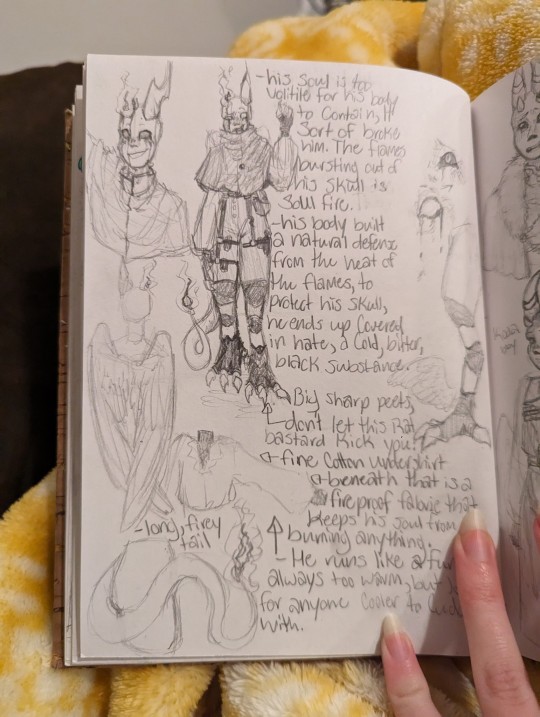 -his soul is too
volitile for his body
to contain, it
sort of broke
him. The flames
bursting out of
his skull is
Soul fire.
-his body built
a natural defense
from the heat of
the flames, to
protect his skull,
he ends up covered
in hate, a cold, bitter,
black substance.
Big sharp peets,
don't let this Rat
bastard kick you!
fine cotton undershirt
beneath that is a
fireproof fabric that
keeps his soul from
burning anything.
-long, firey
tail
- He runs like a
always too warm, but
for anyone cooler to
with.